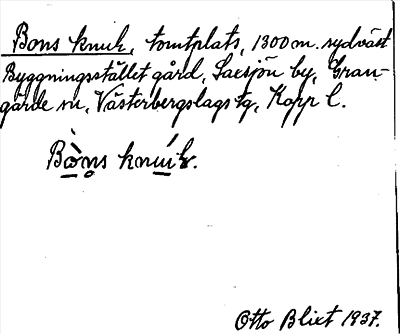 Bons knuk, tomtplats, 1300 m. sydväst
Byggningsstället gård, Saxsjön by, Gran-
gärde sn, Västerbergslags tg, Kopp l.
Bò̲n̥s knú̲k.
Otto Blixt 1937.